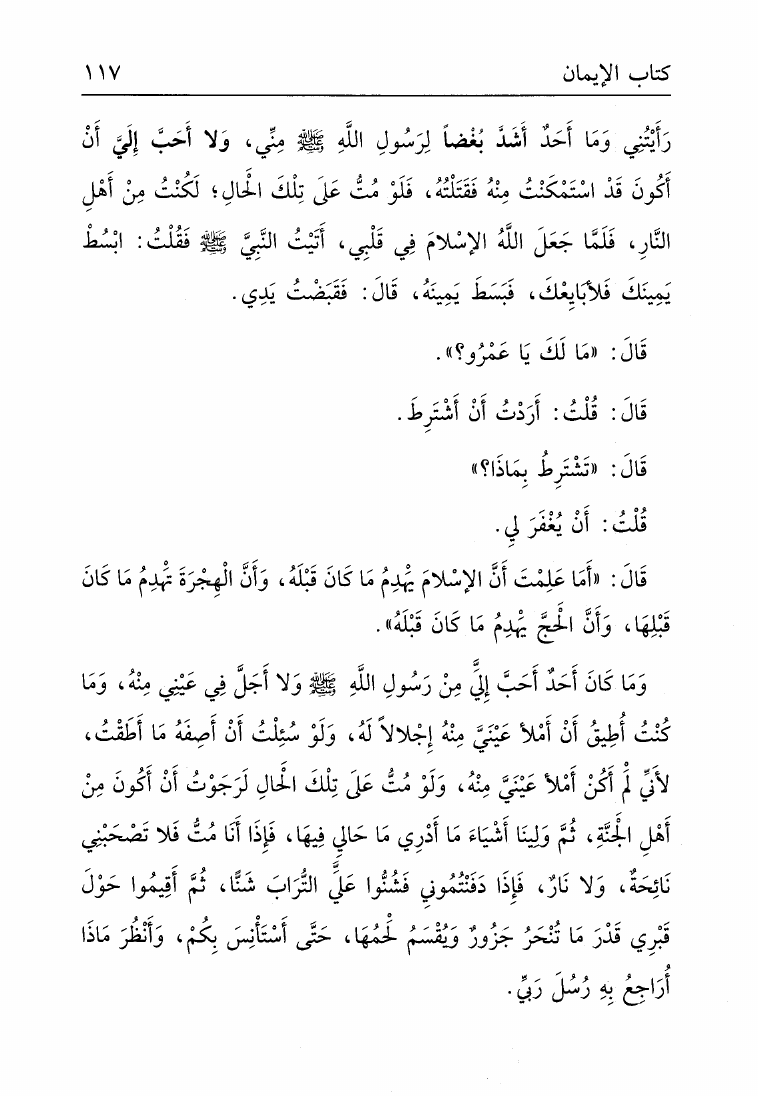 كتاب الإيمان ١١٧
رَأَيْتُنِي وَمَا أَحَدٌ أَشَدَّ بُغْضاً لِرَسُولِ اللَّهِ ﷺ مِنِّي، وَلا أَحَبَّ إِلَيَّ أَنْ
أَكُونَ قَدْ اسْتَمْكَنْتُ مِنْهُ فَقَتَلْتُهُ، فَلَوْ مُتُّ عَلَى تِلْكَ الْحَالِ؛ لَكُنْتُ مِنْ أَهْلِ
النَّارِ، فَلَمَّا جَعَلَ اللَّهُ الإِسْلامَ فِي قَلْبِي، أَتَيْتُ النَّبِيَّ ﷺ فَقُلْتُ: ابْسُطْ
يَمِينَكَ فَلأُبَايِعْكَ، فَبَسَطَ يَمِينَهُ، قَالَ: فَقَبَضْتُ يَدِي.
قَالَ: «مَا لَكَ يَا عَمْرُو؟».
قَالَ: قُلْتُ: أَرَدْتُ أَنْ أَشْتَرِطَ.
قَالَ: «تَشْتَرِطُ بِمَاذَا؟»
قُلْتُ: أَنْ يُغْفَرَ لِي.
قَالَ: «أَمَا عَلِمْتَ أَنَّ الإِسْلامَ يَهْدِمُ مَا كَانَ قَبْلَهُ، وَأَنَّ الْهِجْرَةَ تَهْدِمُ مَا كَانَ
قَبْلِهَا، وَأَنَّ الْحَجَّ يَهْدِمُ مَا كَانَ قَبْلَهُ».
وَمَا كَانَ أَحَدٌ أَحَبَّ إِلَيَّ مِنْ رَسُولِ اللَّهِ ﷺ وَلا أَجَلَّ فِي عَيْنِي مِنْهُ، وَمَا
كُنْتُ أُطِيقُ أَنْ أَمْلأَ عَيْنَيَّ مِنْهُ إِجْلالاً لَهُ، وَلَوْ سُئِلْتُ أَنْ أَصِفَهُ مَا أَطَقْتُ،
لأَنِّي لَمْ أَكُنْ أَمْلأُ عَيْنَيَّ مِنْهُ، وَلَوْ مُتُّ عَلَى تِلْكَ الْحَالِ لَرَجَوْتُ أَنْ أَكُونَ مِنْ
أَهْلِ الْجَنَّةِ، ثُمَّ وَلِينَا أَشْيَاءَ مَا أَدْرِي مَا حَالِي فِيهَا، فَإِذَا أَنَا مُتُّ فَلا تَصْحَبْنِي
نَائِحَةٌ، وَلا نَارٌ، فَإِذَا دَفَنْتُمُونِي فَشُنُّوا عَلَيَّ التُّرَابَ شَنًّا، ثُمَّ أَقِيمُوا حَوْلَ
قَبْرِي قَدْرَ مَا تُنْحَرُ جَزُورٌ وَيُقْسَمُ لَحْمُهَا، حَتَّى أَسْتَأْنِسَ بِكُمْ، وَأَنْظُرَ مَاذَا
أُرَاجِعُ بِهِ رُسُلَ رَبِّي.